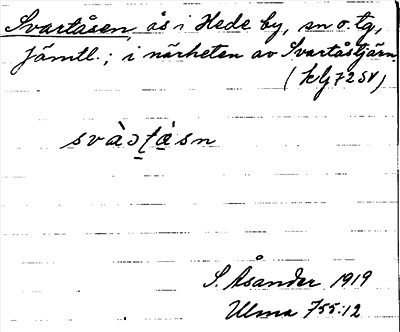 Svartåsen, ås i Hede by, sn o. tg,
Jämtl.; i närheten av Svartåstjärn.
(klj 72 SV)
svàɔṭà̱sn
S. Åsander 1919
Ulma 755:12